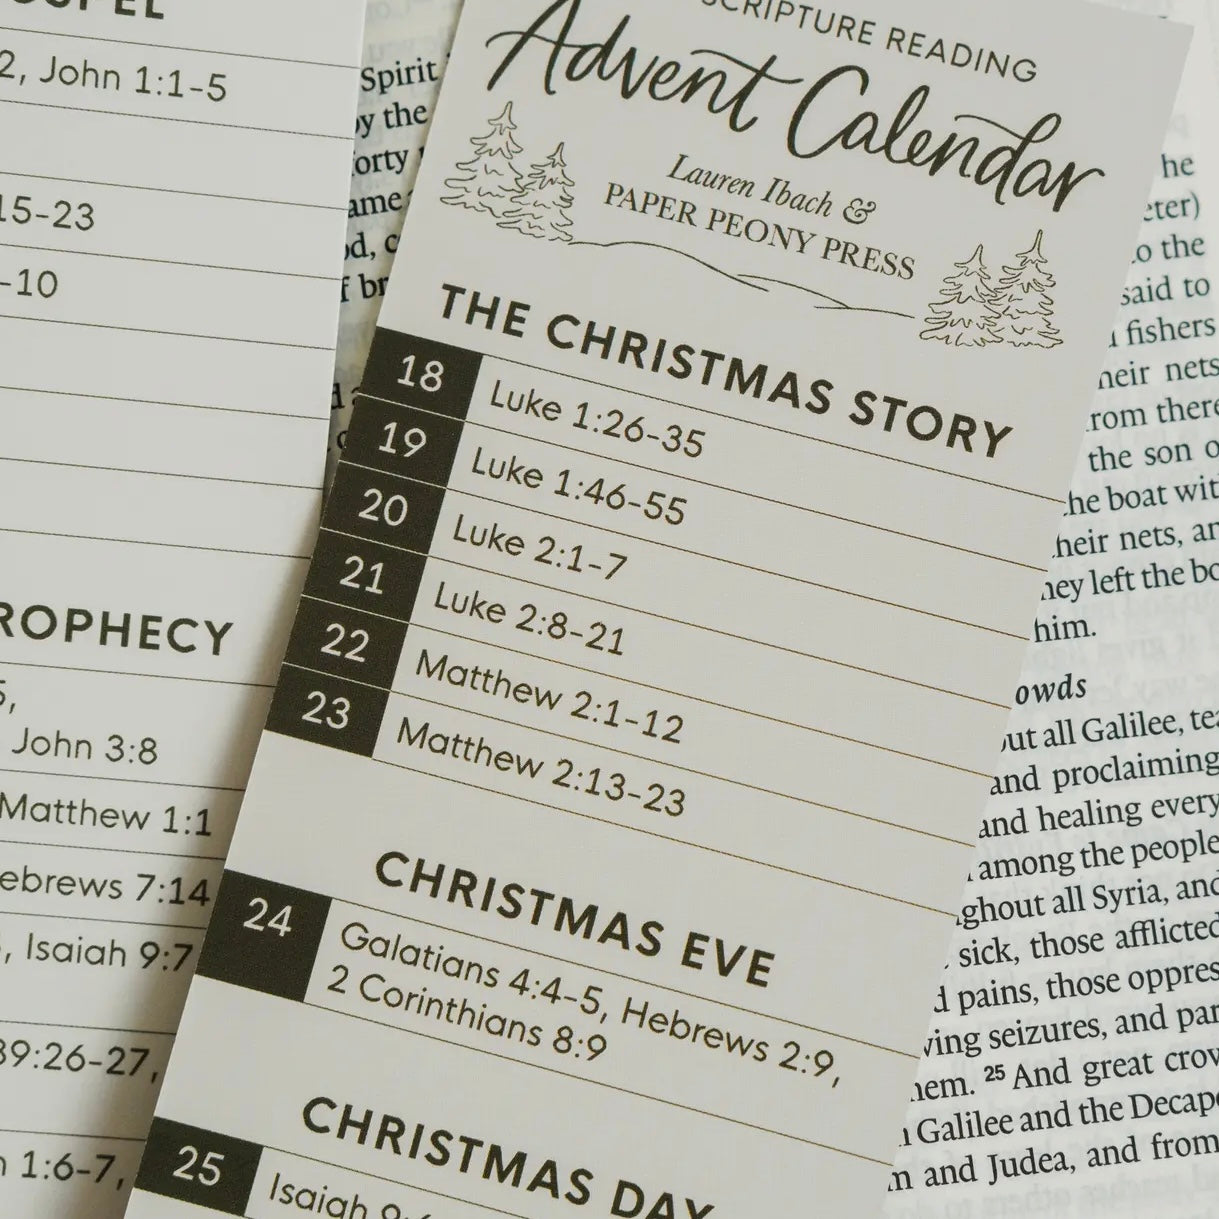 2, John 1:1-5
15-23
-10
PROPHECY
John 3:8
Matthew 1:1
Hebrews 7:14
, Isaiah 9:7
89:26-27,
1:6-7,
SCRIPTURE READING
Advent Calendar
Lauren Ibach &
PAPER PEONY PRESS
THE CHRISTMAS STORY
18 Luke 1:26-35
19 Luke 1:46-55
20 Luke 2:1-7
21 Luke 2:8-21
22 Matthew 2:1-12
23 Matthew 2:13-23
CHRISTMAS EVE
24 Galatians 4:4-5, Hebrews 2:9,
2 Corinthians 8:9
CHRISTMAS DAY
25 Isaiah
Spirit
by the
he
to the
said to
fishers
their nets
from there
the son
the boat
their nets,
they left the
him.
all Galilee,
and proclaiming
and healing every
among the people
all Syria, and
sick, those afflicted
pains, those
seizures, and
them. 25 And great
Galilee and the
and Judea, and from